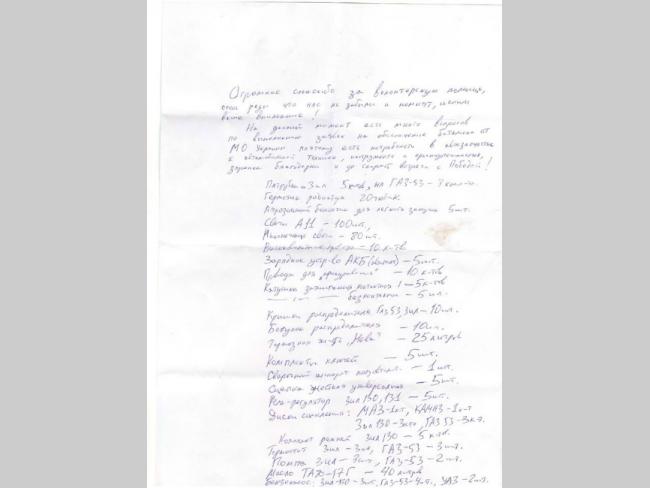 Огромное спасибо за волонтерскую помощь,
очень рады что нас не забыли и помнят, ценим
ваше внимание!
На данный момент есть много вопросов
по выполнению заявок на обеспечение батальона от
МО Украины поэтому есть потребность в
к автомобильной технике, инструменте и
Зарание благодарны и до скорой встречи с Победой!
Патрубки Зил 5 к-тов, на ГАЗ-53 -
Герметик 20 тюбик.
Аэрозольный баллончик для легкого запуска 5шт.
Свечи А11 - 100шт.,
свечи - 80шт.
- 10 к-тв
Зарядное устр-во АКБ - 5шт.
Провода для "прикуривания" - 10 к-тв
Катушка зажигания контактная - 5 к-тв
— бесконтактн - 5 шт.
Крышки распределителя Газ 53, Зил - 10шт.
Бегунки распределителя - 10шт.
Тормозная ж-ть "Нева" - 25 литров
Комплекты ключей - 5шт.
Сварочный аппарат - 1шт.
Сцепка жесткая универсальная - 5шт.
Реле-регулятор Зил 130, 131 - 5шт.
Диски сцепления: МАЗ-1кт, КАМАЗ-1кт
Зил 130-3кт, ГАЗ 53-3кт.
Комплект ремней Зил 130 - 5 к-тв.
Термостат Зил - 3шт, ГАЗ-53 - 3шт.
Помпа Зил - 3шт., ГАЗ-53 - 2шт.
Масло - 40 литров
Бензонасос: Зил-130-3шт, ГАЗ-53-4шт., УАЗ-2шт.